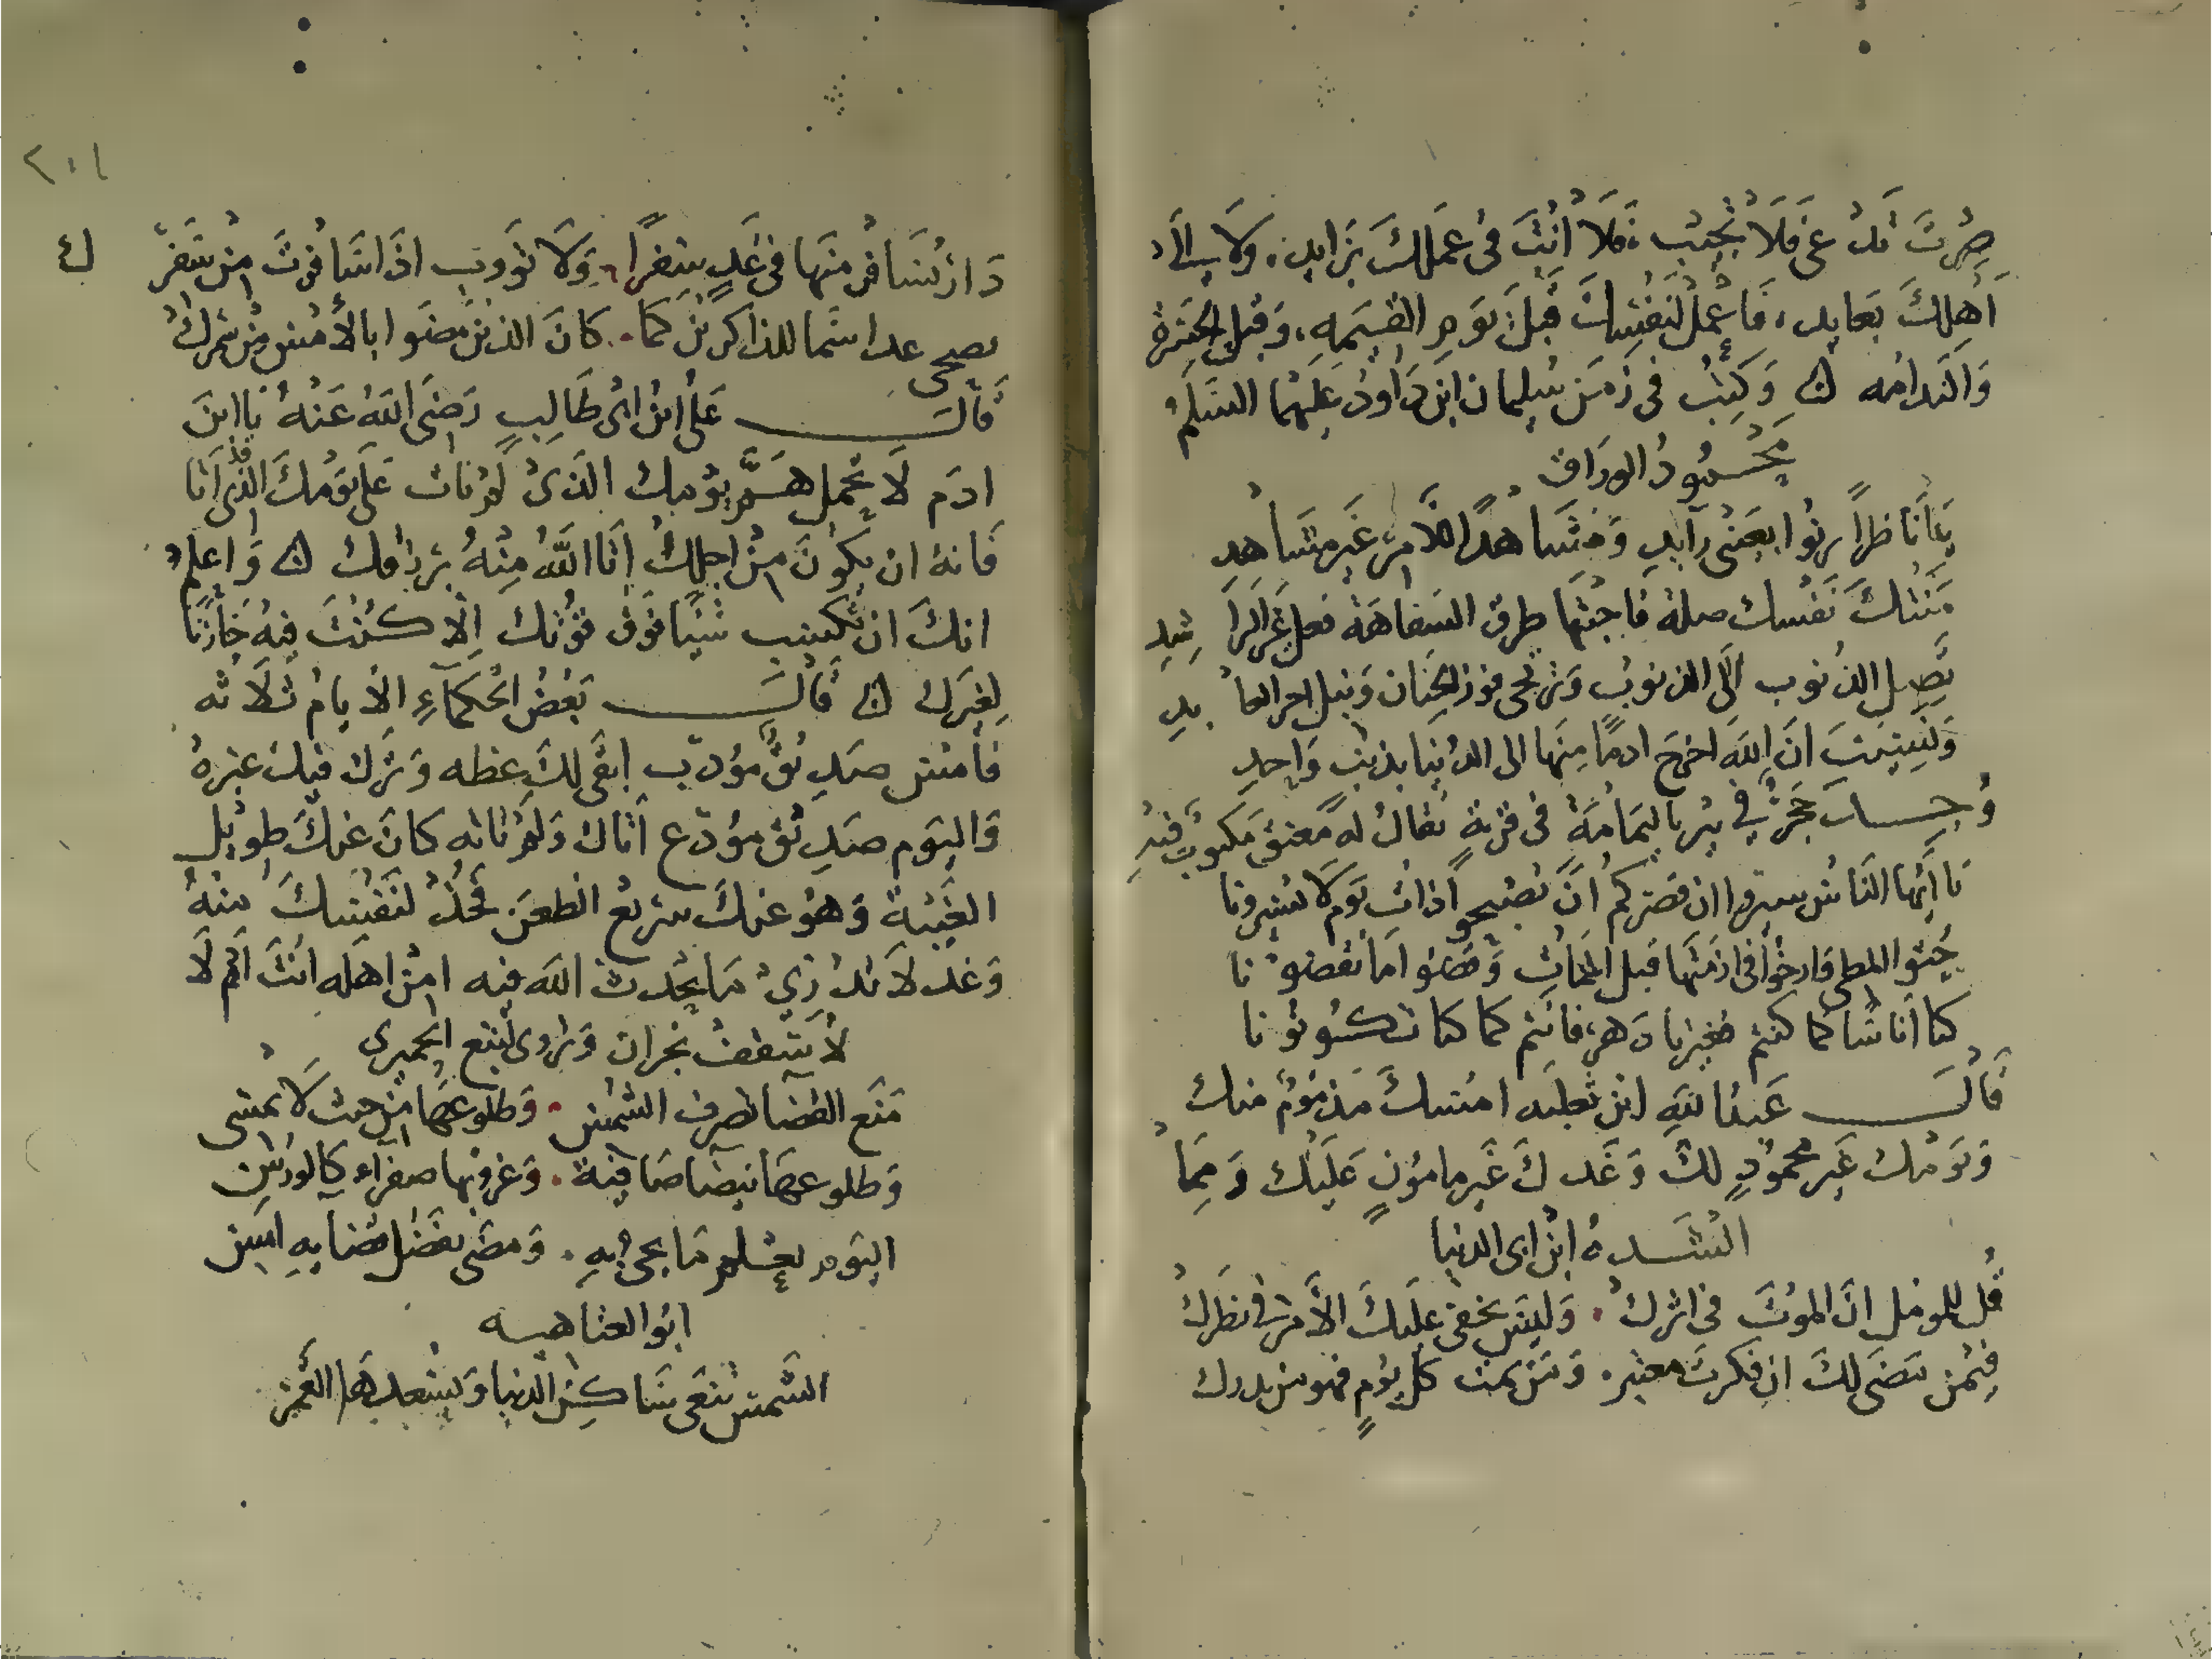 صِرْتَ تُدْعَى فَلَا تُجِيْب، فَلَا أَنْتَ فى عَمَلِكَ بِزَايدٍ، وَلَا الى
أَهْلِكَ بعَايدٍ، فَاعْمَلْ لنَفْسِكَ قَبْلَ يَومِ القيمَهِ، وَقبل الحَسْرَة
وَالنَدامَه وَكتِبُ فى زمَن سُليمان ابن دَاوُد عَليهما السَلَم
محْمُودُ الورَاق
يَا نَاظراً يرنُوا بعَيْنى رَاقِدٍ وَمُشَاهداً للأمرِ غَير مشَاهدِ
مَنَتْكَ نَفْسك ضلة فَابحْتها طرق السَفاهَة فعل غَير الرَا شِدِ
تَصِل الذنُوب الَى الذنوبُ وَترتجى فوز الجنَان وَنيل اجر العا بدِ
وَنَسِيتَ انَ اللَهَ اخرجَ ادمًا مِنهَا الى الدُنيا بذَنبٍ وَاحِدِ
وُجِــدَ حَجَرٌ فِى بئر باليمَامَةِ فى قريةٍ يُقالُ لهَ مُعنق مَكتوبٌ فيْهِ
يَا أَيُّها النَاسُ سيروا ان قصَركم أَنَ تُصْبِحوا ذاتَ يَوم لَا تسيرونا
حُثوا المطى وَارخوا فى ازمَتها قبل الممَات وَقضوا مَا تقضو نا
كنا أناسًا كما كنتم فغيرنا دَهر، فانَتم كما كنا تكــونو نا
قَالَــ عَبدُ اللهِ ابن ثعلبَه امْسكَ مَذمُومٌ منك
وَيَومُك غَير محمُودٍ لكَ وَغَدكَ غَير مامُونٍ عَليْك وَممَا
انشَــدهُ ابْن ابى الدنيا
قُل للموَمل انَ الموْتَ فى اثرك. وَليسَ يخفى عَليكَ الأَمر فى نظَركُ
فيْمن مَضَى لكَ ان فكرتَ معتبر. وَمَن يمت كل يَومٍ فهو من
دَار تُسَافرُ منهَا فى غَدٍ سَفرًا. وَلَا تؤوب اذَا سَافرْتَ مِن سَفَر ك
تضحى غدا سَمَا للذاكرينَ كَمَا. كانَ الذينَ مضَوا بالأمْس مِنْ سَمَرك
قَالَــ عَلىُ ابنُ ابى طَالِبٍ رَضِىَ اللهُ عَنْهُ يَا ابنَ
ادَم لَا تحْمِل هَــمَّ يَوْمِكَ الذىْ لَمْ يَات عَلَى يَوْمُكَ الذى أتَا
فَانهُ ان يَكوُنَ مِنْ اجلِكَ اتَا اللَهُ مِنْهُ برزقك وَاعلمْ
انكَ ان تكسِب شَيئًا فَوَق قوْتك إلَا كــنتَ فيْهُ خَازنًا
لِغَيرك قَالَــ بَعْضُ الحُكَمَآءِ الأيامُ ثلَاثه
فَأمْس صَدِيْقُ مؤدّب ابقَى لكَ عظه وَترك فيك عبرهُ
وَاليَوم صَدِيْقُ مودّع اتَاك وَلَم تاته كانَ عنكَ طويل
الغَيْبَةَ وَهوَ عنكَ سَريعُ الظعنَ فخُذْ لنفْسكَ منْهُ
وَغد لَا تدْرِيْ مَا يحْدث اللهَ فيه امنْ اهلَه انْتَ أَمْ لَا
لأُسْقفُ نجران وَيروى لتبع الحميرى
مَنَع القضَا تصرف الشمْس. وَطلوعهَا مِن حيث لَا تمسى
وَطلوعهَا بيضَا صَافيَة. وَغروبها صفراء كالورْسِ
اليَوم يعْــلم مَا يجى بهِ. وَمضَى بفَضل قضَايهِ امسِ
ابوُ العتاهيــه
الشَمسَ تنْعَى سَاكــن الدنيا وَيسْعدهَا القَمر
٢٠١